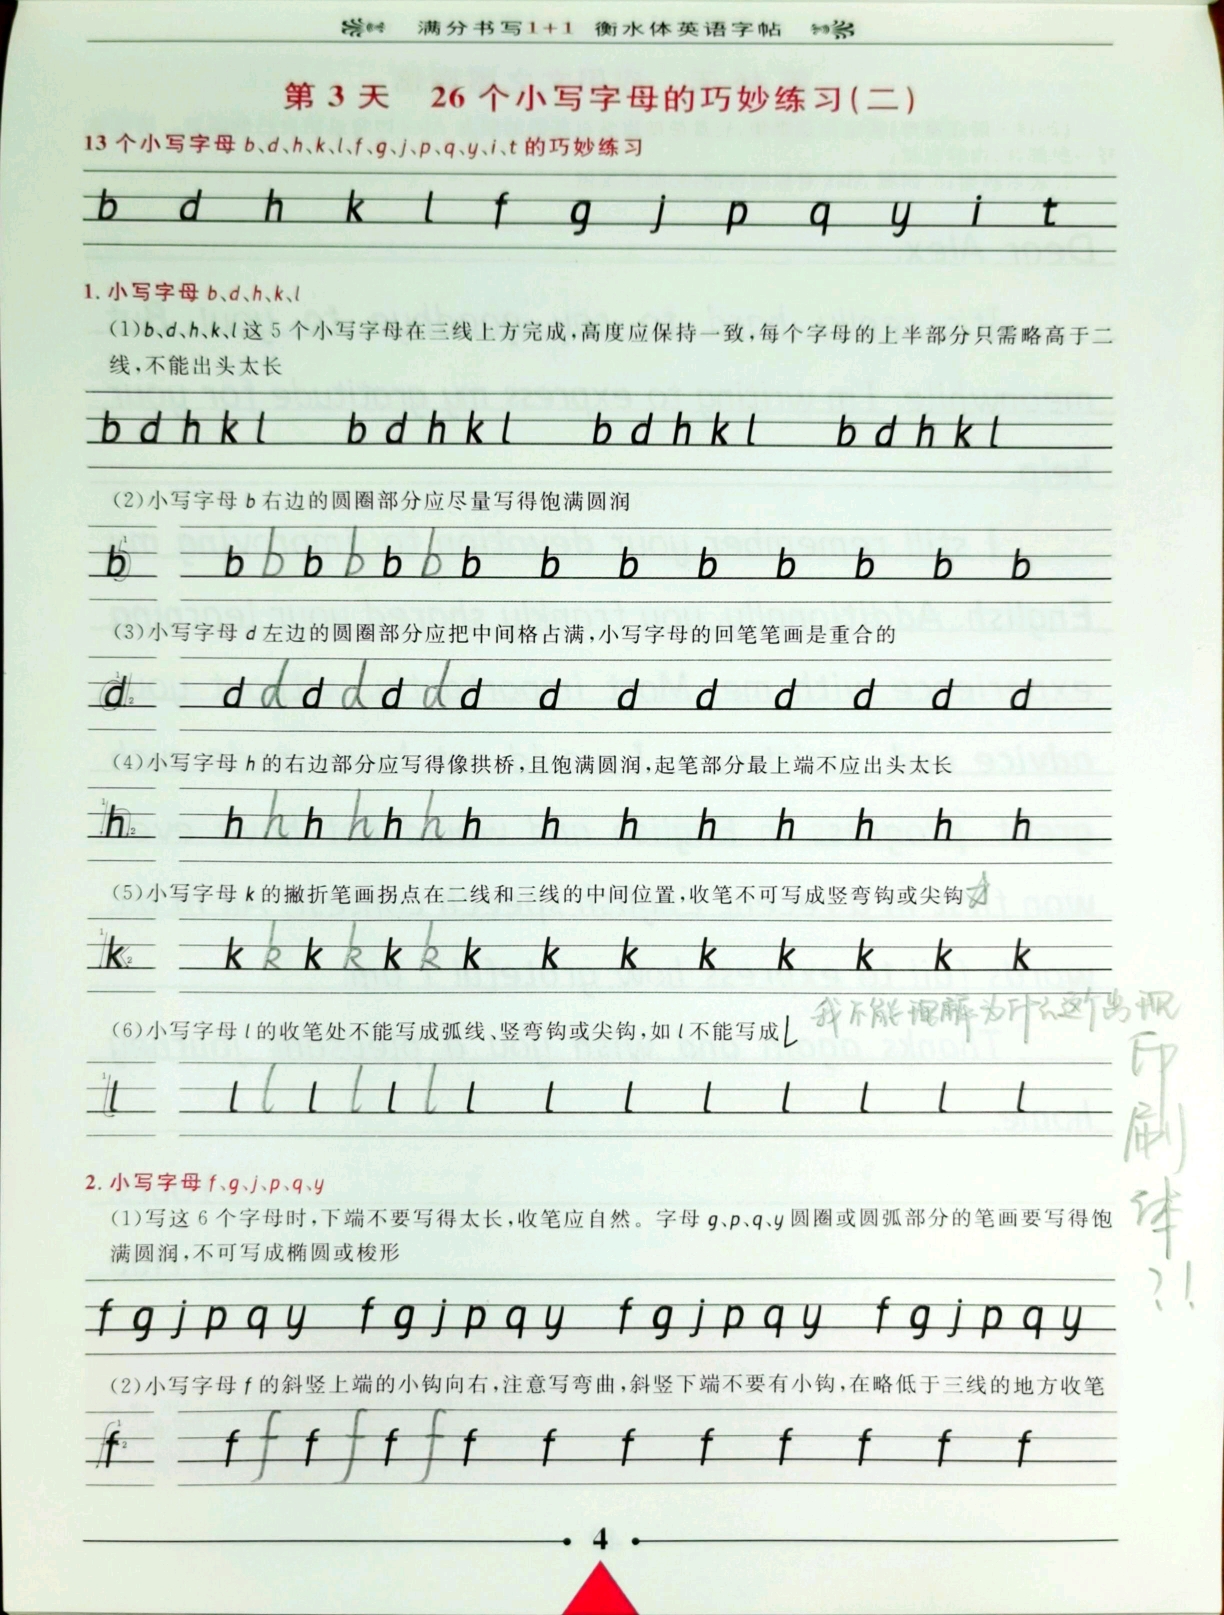 满分书写1+1 衡水体英语字帖
第 3 天 26 个小写字母的巧妙练习(二)
13 个小写字母 b、d、h、k、l、f、g、j、p、q、y、i、t 的巧妙练习
b d h k l f g j p q y i t
1. 小写字母 b、d、h、k、l
(1)b、d、h、k、l 这 5 个小写字母在三线上方完成,高度应保持一致,每个字母的上半部分只需略高于二
线,不能出头太长
b d h k l b d h k l b d h k l b d h k l
(2)小写字母 b 右边的圆圈部分应尽量写得饱满圆润
b b b b b b b b b b b b b b b
(3)小写字母 d 左边的圆圈部分应把中间格占满,小写字母的回笔笔画是重合的
d d d d d d d d d d d d d d d
(4)小写字母 h 的右边部分应写得像拱桥,且饱满圆润,起笔部分最上端不应出头太长
h h h h h h h h h h h h h h h
(5)小写字母 k 的撇折笔画拐点在二线和三线的中间位置,收笔不可写成竖弯钩或尖钩
k k k k k k k k k k k k k k k
我不能理解为什么这个出现
(6)小写字母 l 的收笔处不能写成弧线、竖弯钩或尖钩,如 l 不能写成 L
印
刷
体
?!
l l l l l l l l l l l l l l l
2. 小写字母 f、g、j、p、q、y
(1)写这 6 个字母时,下端不要写得太长,收笔应自然。字母 g、p、q、y 圆圈或圆弧部分的笔画要写得饱
满圆润,不可写成椭圆或梭形
f g j p q y f g j p q y f g j p q y f g j p q y
(2)小写字母 f 的斜竖上端的小钩向右,注意写弯曲,斜竖下端不要有小钩,在略低于三线的地方收笔
f f f f f f f f f f f f f f f
4